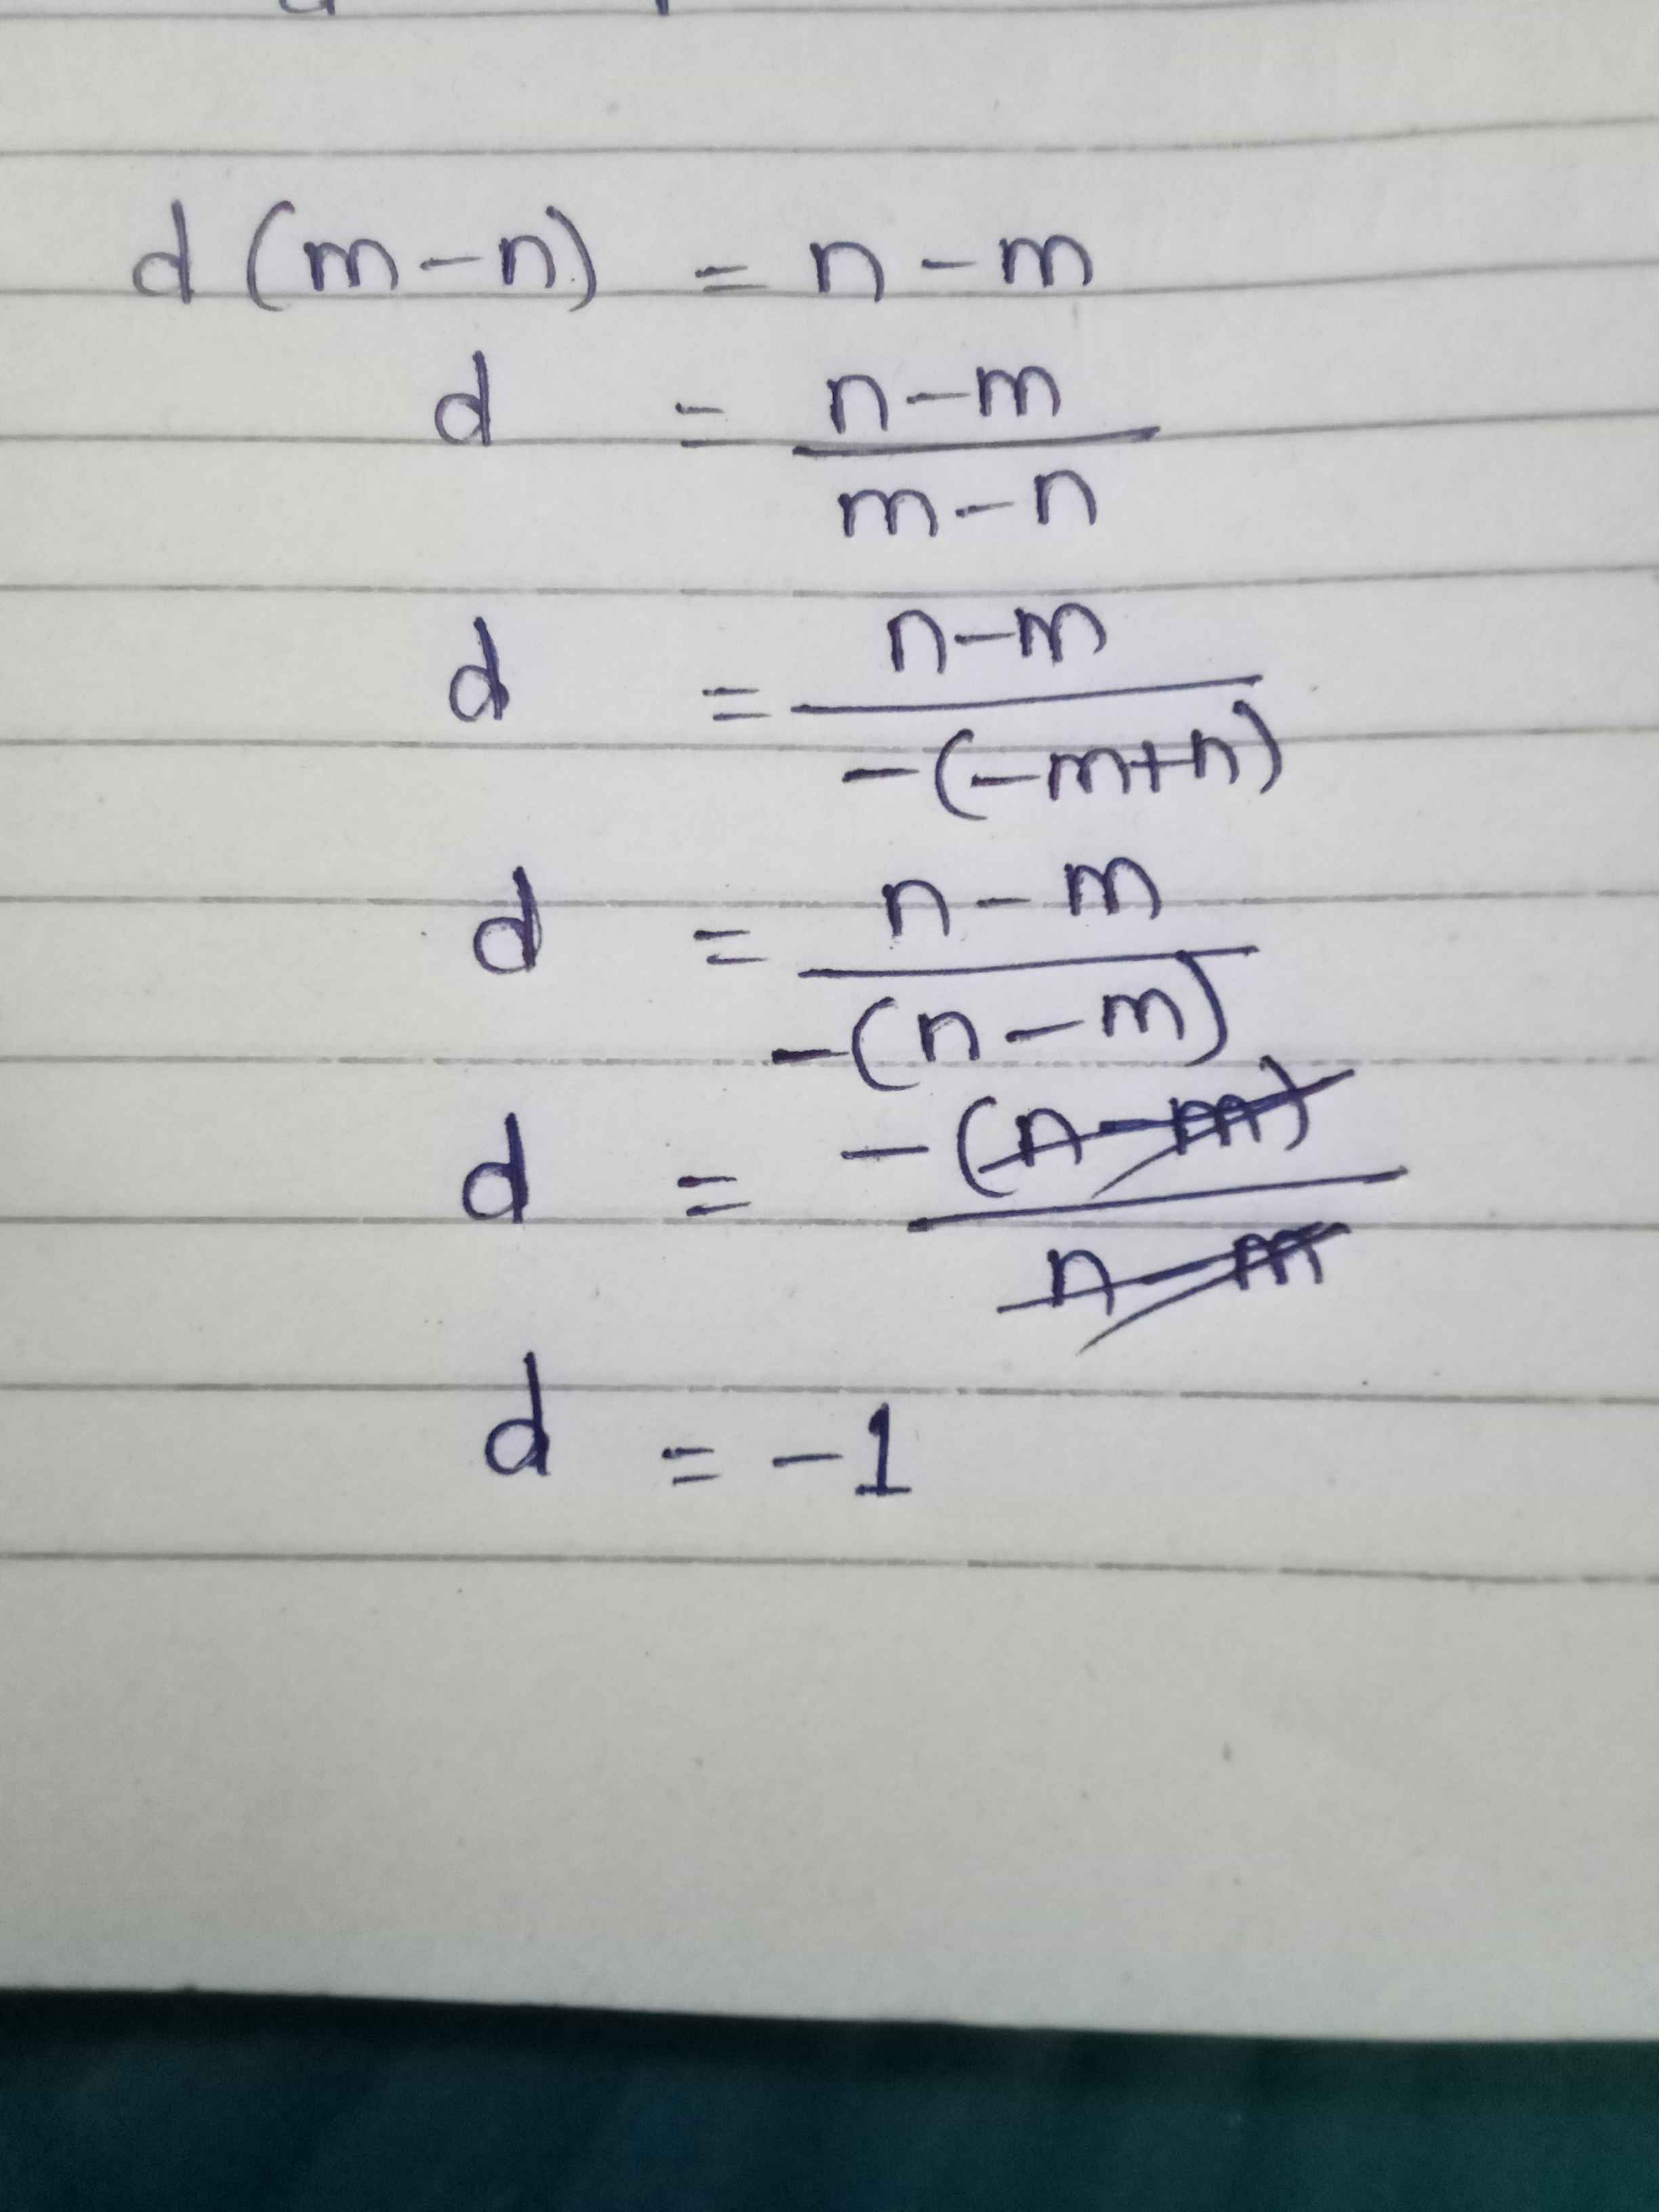 d (m - n) = n - m
d = n - m / m - n
d = n - m / -(-m+n)
d = n - m / -(n - m)
d = -(n - m) / n - m
d = -1